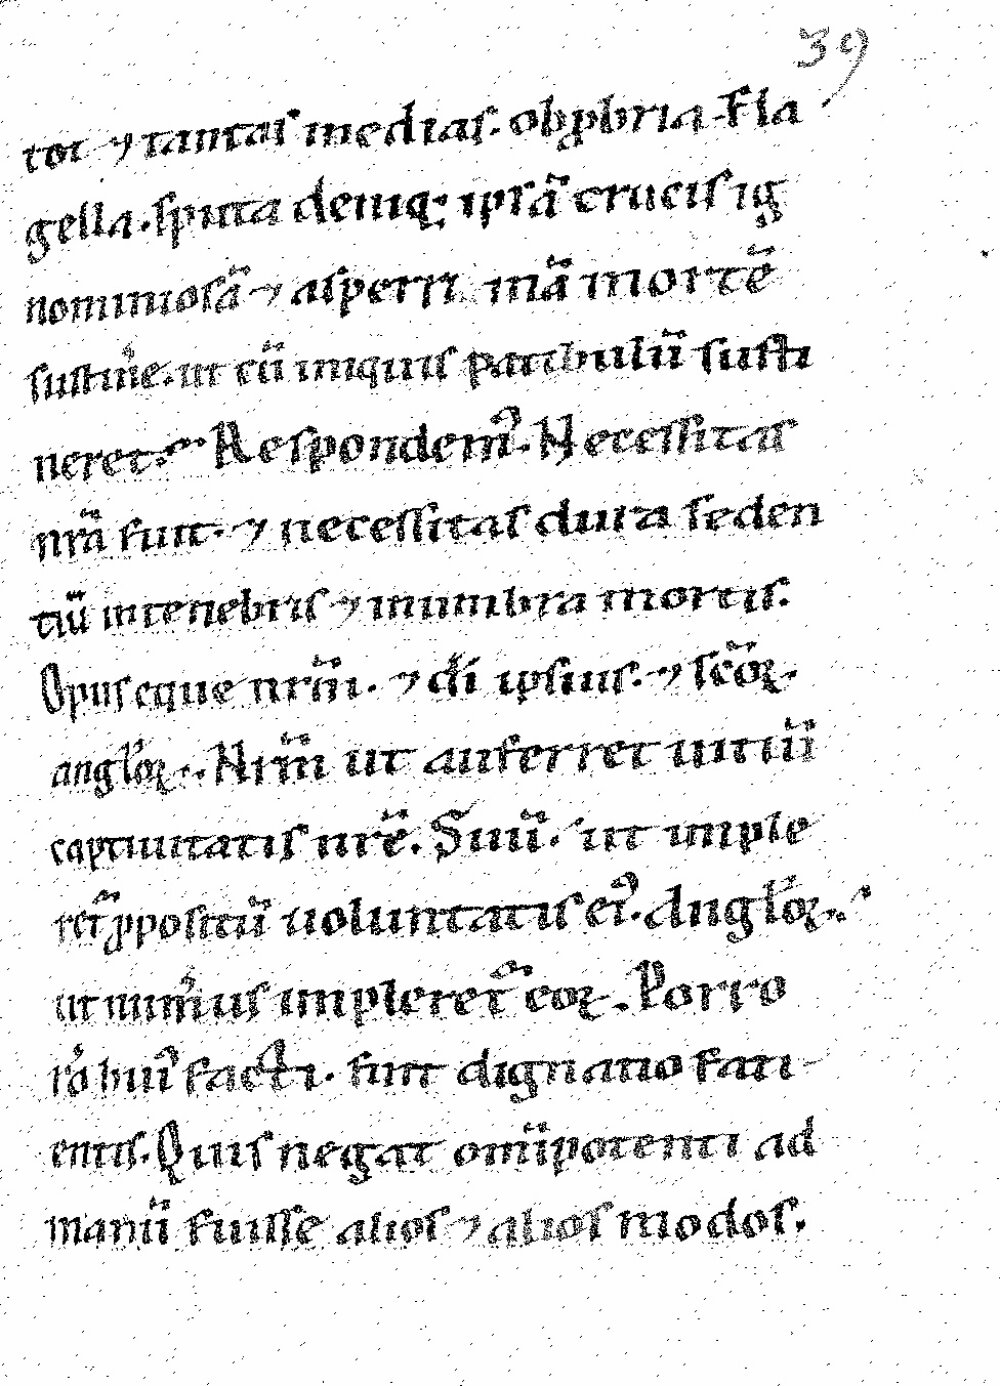 39
tot ⁊ tantas medias. obꝓbria. Fla
gella. sputa deniq; ipsā crucis ig
nominiosā ⁊ asperri mā mortē
sustin̛e. ut cū iniquis patibulū susti
neret. Respondem᷒. Necessitas
nr̄ā fuit. ⁊ necessitas dura seden
tiū in tenebris ⁊ in umbra mortis.
Opus eque nr̄m. ⁊ di ipsius. ⁊ sc̄oꝝ.
angl̛oꝝ. Nr̄m ut auferret iuitiū
captiuitatis nr̄e. Suū. ut imple
ret᷒ ꝓpositū uoluntatis ei᷒. Angl̛oꝝ.
ut num̛us impleret᷒ eoꝝ. Porro
rơ hui᷒ facti. fuit dignatio faci-
entis. Quis negat om̄ipotenti ad
manū fuisse alios ⁊ alios modos.